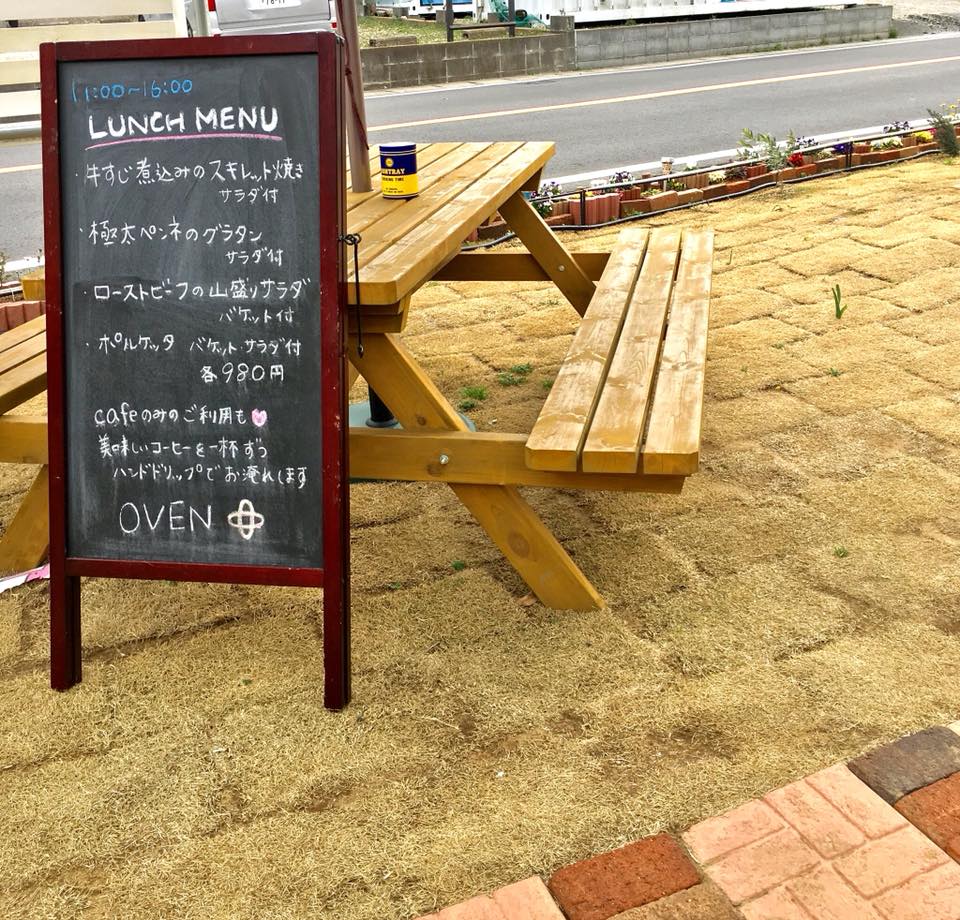 11:00~16:00
LUNCH MENU
・牛すじ煮込みのスキレット焼き
サラダ付
・極太ペンネのグラタン
サラダ付
・ローストビーフの山盛りサラダ
バケット付
・ポルケッタ バケット・サラダ付
各980円
cafeのみのご利用も
美味しいコーヒーを一杯ずつ
ハンドドリップでお淹れします
OVEN